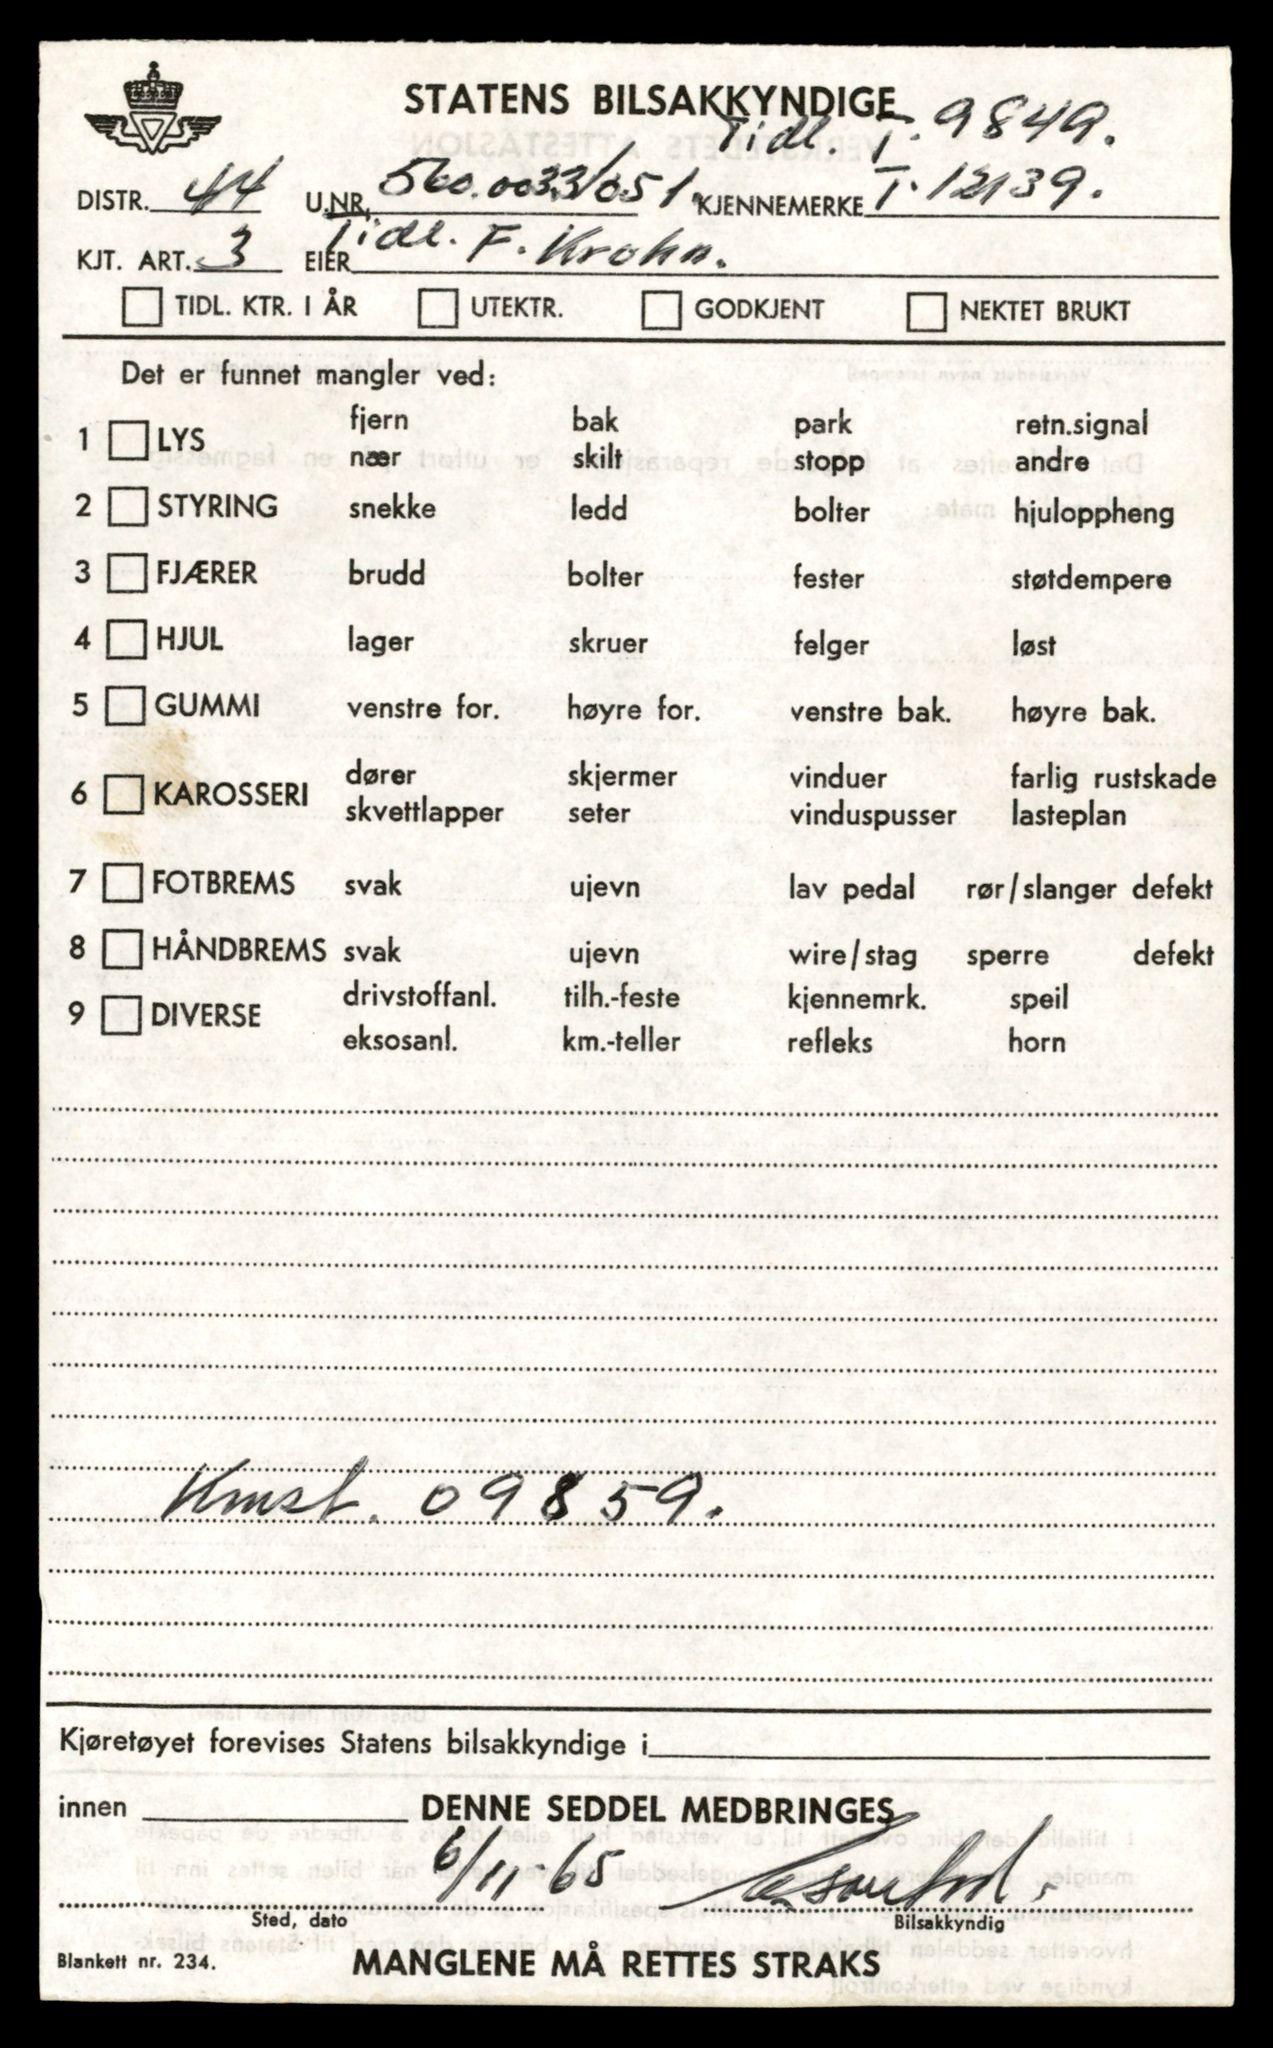 STATENS BILSAKKYNDIGE
Tidl. T. 9849.
DISTR. 44 U.NR. 560.0033/051. KJENNEMERKE T.12139.
KJT. ART. 3 EIER Tidl. F. Krohn.
TIDL. KTR. I ÅR UTEKTR. GODKJENT NEKTET BRUKT
Det er funnet mangler ved:
1 LYS fjern bak park retn.signal
nær skilt stopp andre
2 STYRING snekke ledd bolter hjuloppheng
3 FJÆRER brudd bolter fester støtdempere
4 HJUL lager skruer felger løst
5 GUMMI venstre for. høyre for. venstre bak. høyre bak.
6 KAROSSERI dører skjermer vinduer farlig rustskade
skvettlapper seter vinduspusser lasteplan
7 FOTBREMS svak ujevn lav pedal rør/slanger defekt
8 HÅNDBREMS svak ujevn wire/stag sperre defekt
9 DIVERSE drivstoffanl. tilh.-feste kjennemrk. speil
eksosanl. km.-teller refleks horn
Kmst. 09859.
Kjøretøyet forevises Statens bilsakkyndige i
innen DENNE SEDDEL MEDBRINGES
6/11-65
Sted, dato Bilsakkyndig
Blankett nr. 234. MANGLENE MÅ RETTES STRAKS